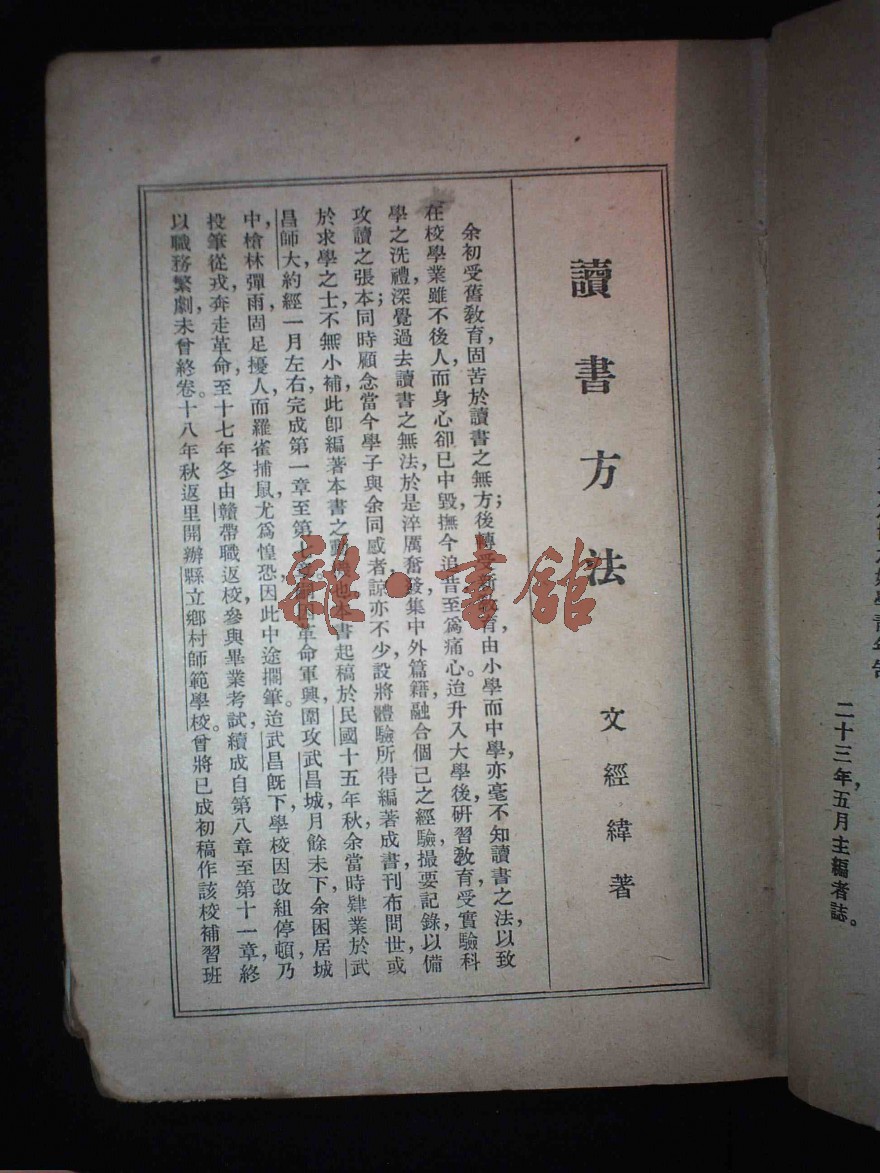 學青年告
二十三年五月主編者誌。
讀書方法
文經緯著
余初受舊敎育,固苦於讀書之無方;後轉受新敎育,由小學而中學,亦毫不知讀書之法,以致
在校學業雖不後人,而身心卻已中毀,撫今追昔,至爲痛心。迨升入大學後,硏習敎育,受實驗科
學之洗禮,深覺過去讀書之無法,於是淬厲奮發,集中外篇籍,融合個己之經驗,撮要記錄,以備
攻讀之張本;同時顧念當今學子與余同感者,諒亦不少,設將體驗所得,編著成書,刊布問世,或
於求學之士,不無小補,此卽編著本書之動機也。本書起稿於民國十五年秋,余當時肄業於武
昌師大,約經一月左右,完成第一章至第七章革命軍興,圍攻武昌城,月餘未下,余困居城
中,槍林彈雨,固足擾人,而羅雀捕鼠,尤爲惶恐,因此中途擱筆。迨武昌旣下,學校因改組停頓,乃
投筆從戎,奔走革命,至十七年冬,由贛帶職返校,參與畢業考試,續成自第八章至第十一章,終
以職務繁劇,未曾終卷。十八年秋返里,開辦縣立鄕村師範學校。曾將已成初稿,作該校補習班
雜·書館